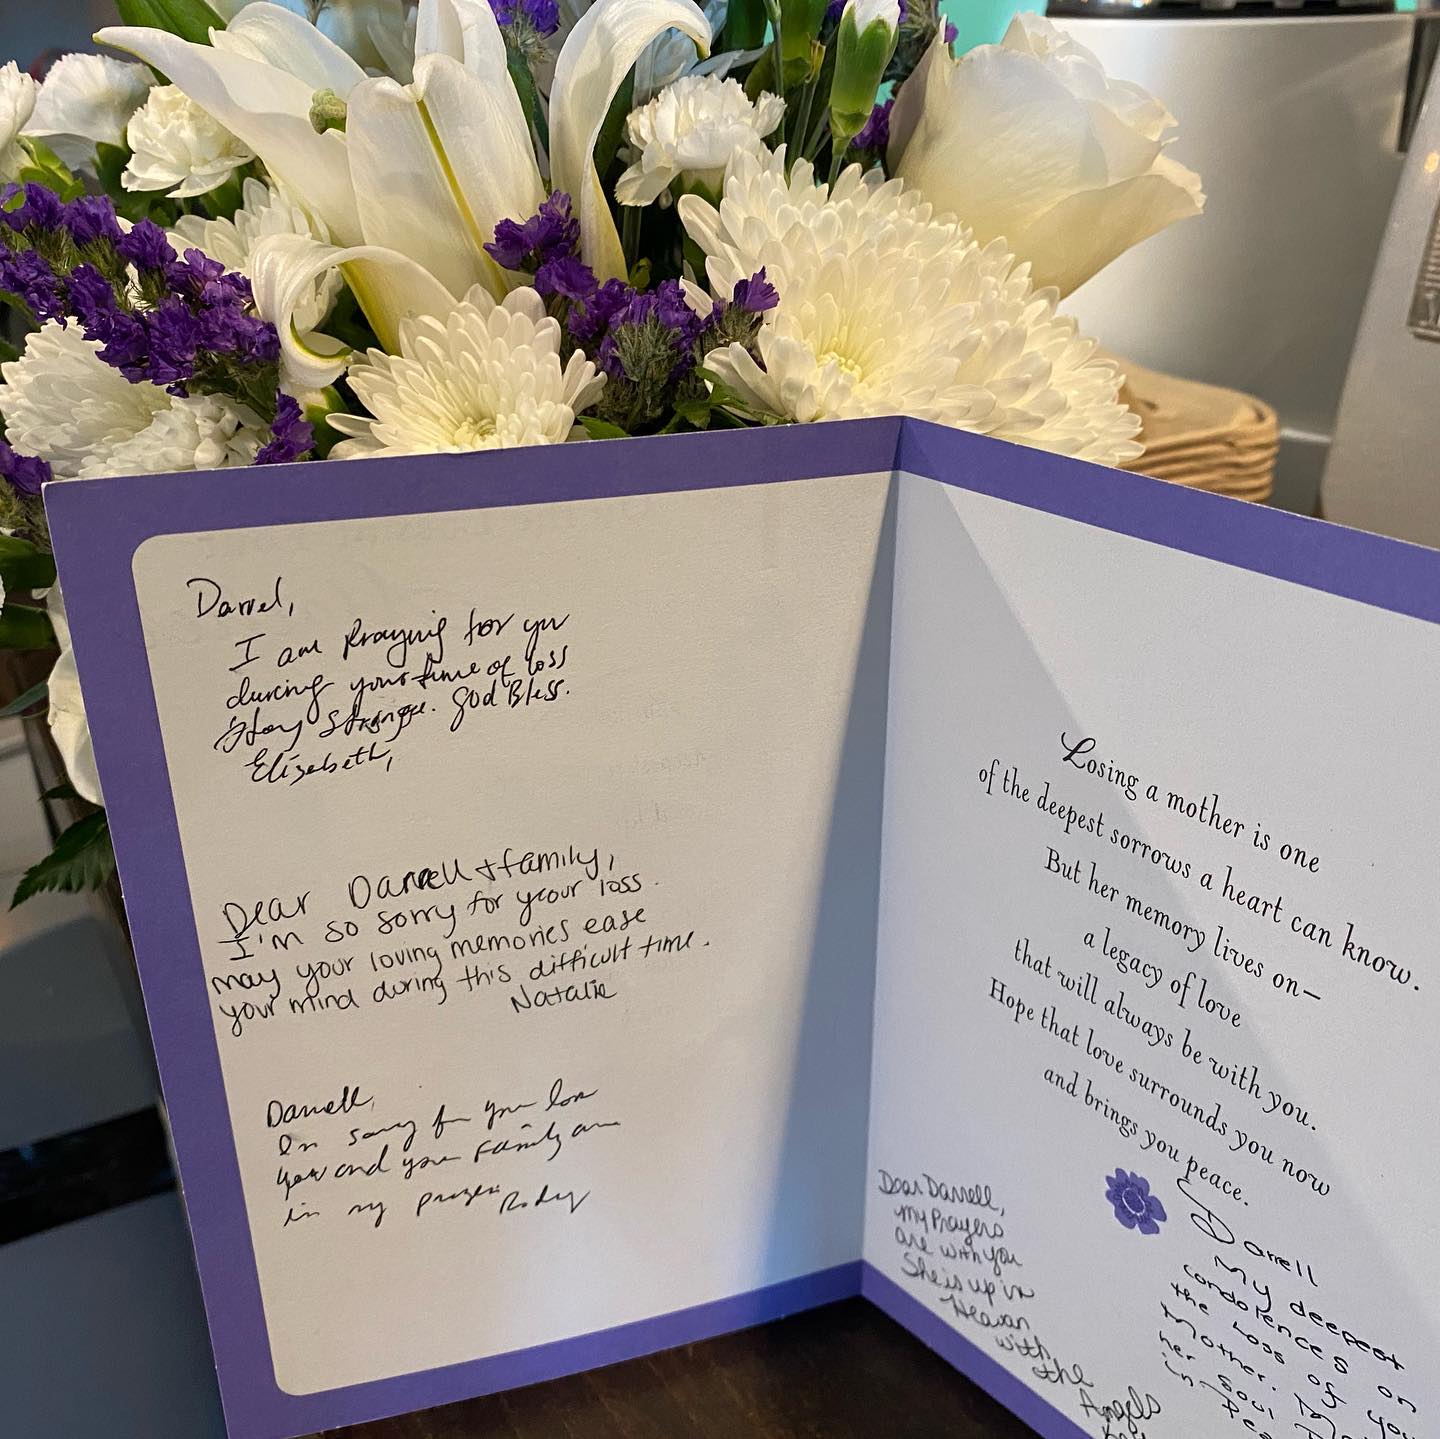 Darrel,
I am Praying for you
during your time of loss
Stay Strong. God Bless.
Elizabeth,
Dear Darrell + family,
I'm so sorry for your loss.
may your loving memories ease
your mind during this difficult time.
Natalie
Darrell,
Im sorry for your loss
You and your family are
in my prayers
Losing a mother is one
of the deepest sorrows a heart can know.
But her memory lives on—
a legacy of love
that will always be with you.
Hope that love surrounds you now
and brings you peace.
Dear Darrell,
My Prayers
are with you
She is up in
Heavan
with
the
Angels
Darrell
My deepest
condolences on
the loss of you
Mother.
her soul
in